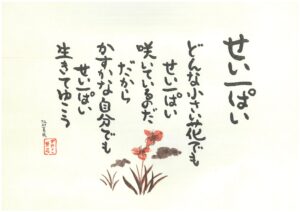 せい一ぱい
どんな小さい花でも
せい一ぱい
咲いているのだ
だから
かすかな自分でも
せい一ぱい
生きてゆこう